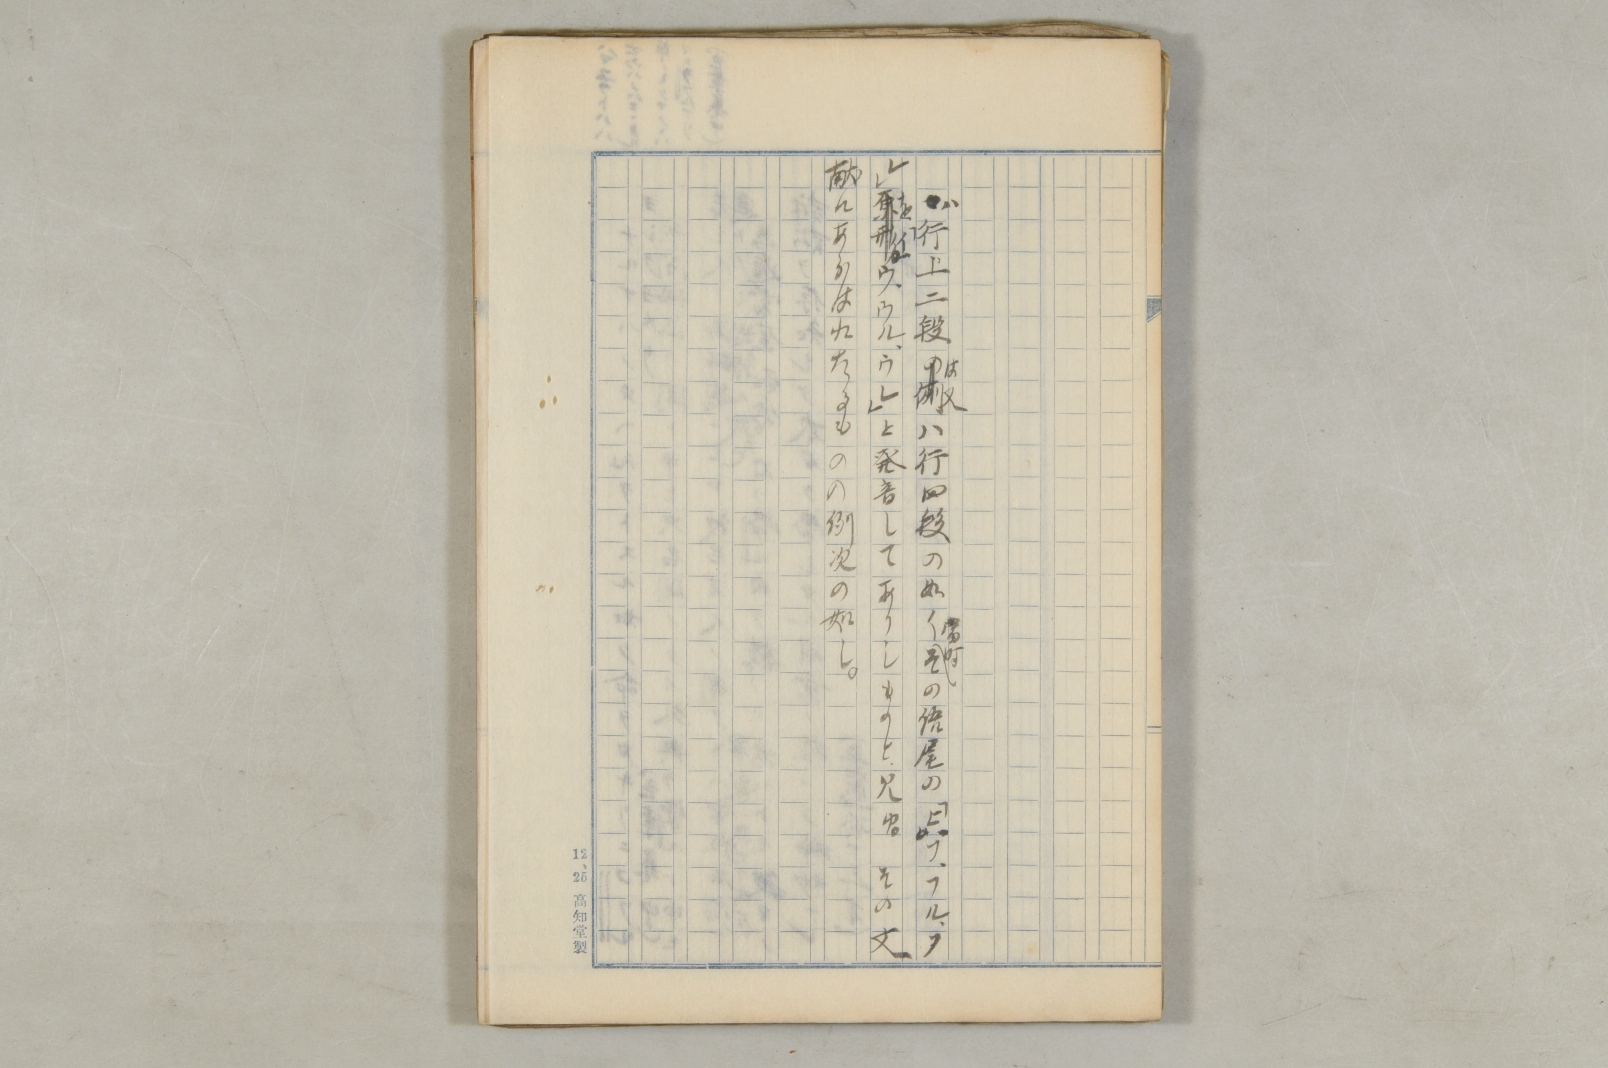 ハ行上二段は又ハ行四段の如く当時その語尾の「フ、フル、フ
レ」を「ウ、ウル、ウレ」と発音してありしものと見ゆ。その文
献にあらはれたるものの例次の如し。
12、25 高知堂製